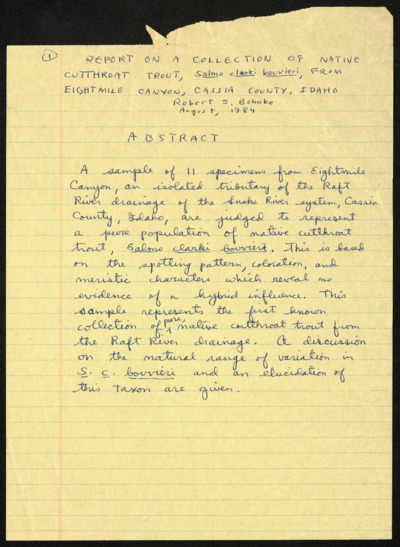 ① REPORT ON A COLLECTION OF NATIVE
CUTTHROAT TROUT, Salmo clarki bouvieri, FROM
EIGHTMILE CANYON, CASSIA COUNTY, IDAHO
Robert J. Behnke
August, 1984
ABSTRACT
A sample of 11 specimens from Eightmile
Canyon, an isolated tributary of the Raft
River drainage of the Snake River system, Cassia
County, Idaho, are judged to represent
a pure population of native cutthroat
trout, Salmo clarki bouvieri. This is based
on the spotting pattern, coloration, and
meristic characters which reveal no
evidence of a hybrid influence. This
sample represents the first known
collection of pure, native cutthroat trout from
the Raft River drainage. A discussion
on the natural range of variation in
S. c. bouvieri and an elucidation of
this taxon are given.